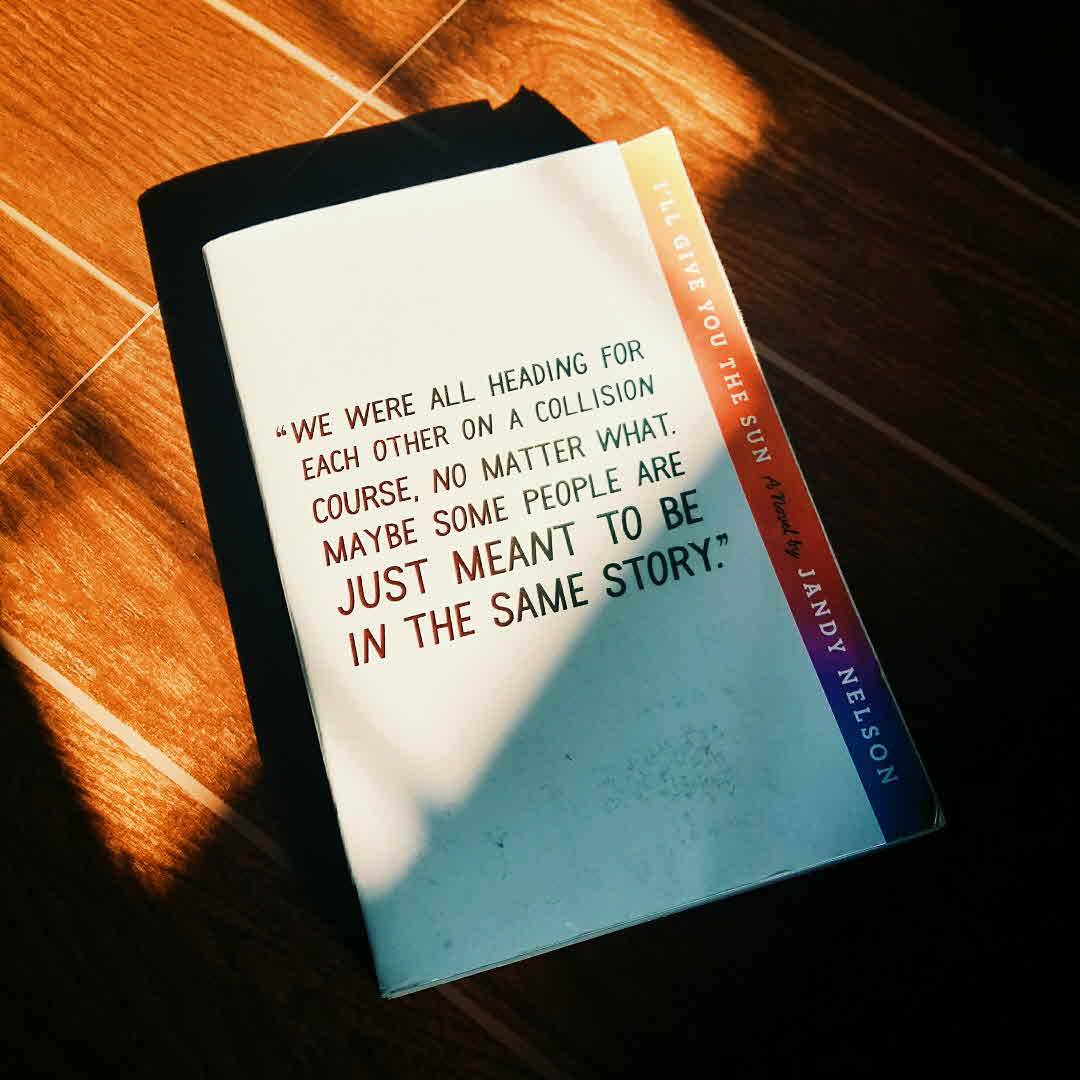 “WE WERE ALL HEADING FOR
EACH OTHER ON A COLLISION
COURSE, NO MATTER WHAT.
MAYBE SOME PEOPLE ARE
JUST MEANT TO BE
IN THE SAME STORY.”
I'LL GIVE YOU THE SUN A Novel by JANDY NELSON